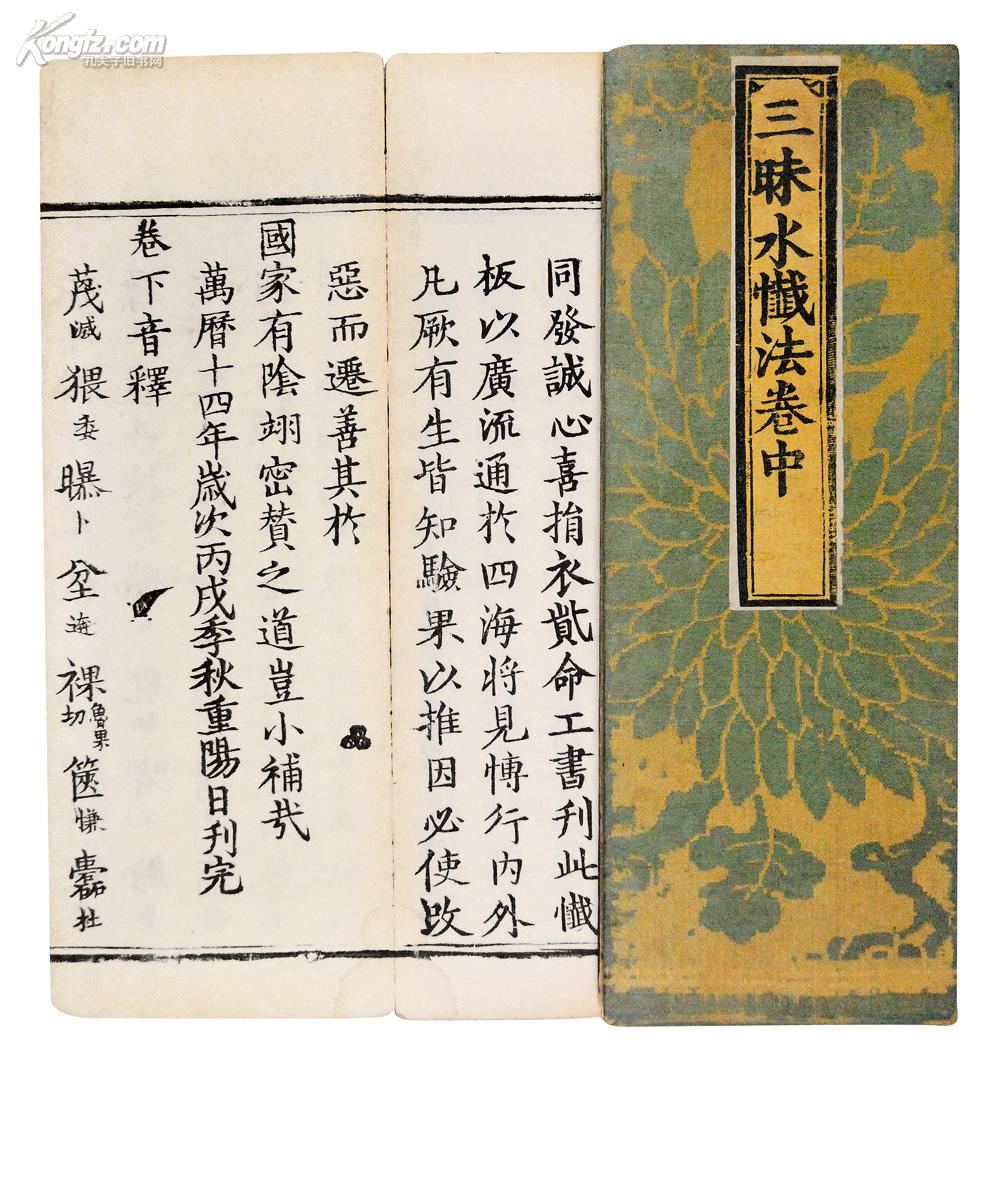 Kongfz.com
孔夫子旧书网
三昧水懺法卷中
同發誠心喜捐衣貲命工書刊此懺
板以廣流通於四海將見愽行内外
凡厥有生皆知驗果以推因必使改
惡而遷善其於
國家有陰翊密贊之道豈小補㢤
萬曆十四年歲次丙戌季秋重陽日刊完
卷下音釋
蔑 滅 猥 委 曝 卜 坌 裸 魯果切 篋 慊 蠹 杜